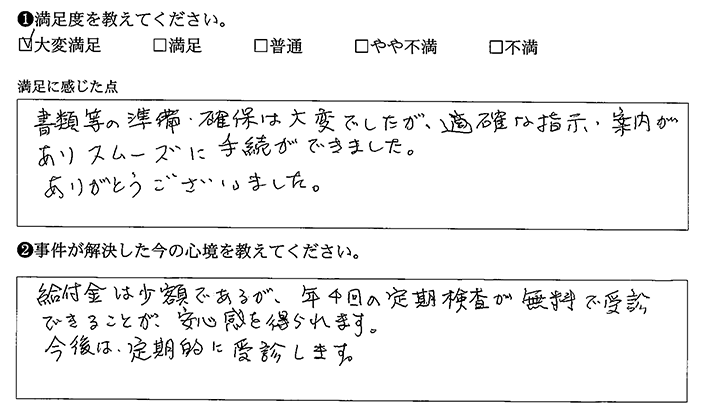 ❶満足度を教えてください。
☑大変満足 □満足 □普通 □やや不満 □不満
満足に感じた点
書類等の準備・確保は大変でしたが、適確な指示、案内が
ありスムーズに手続ができました。
ありがとうございました。
❷事件が解決した今の心境を教えてください。
給付金は少額であるが、年4回の定期検査が無料で受診
できることが、安心感を得られます。
今後は、定期的に受診します。